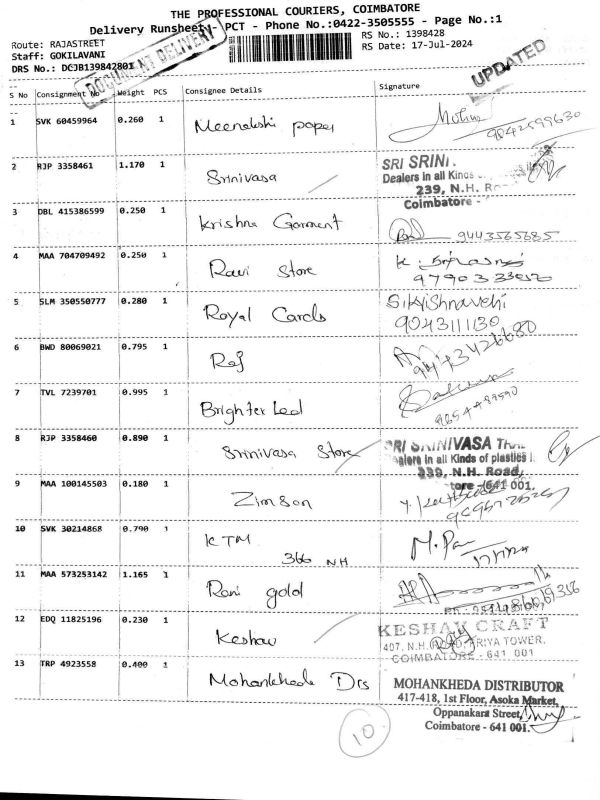 THE PROFESSIONAL COURIERS, COIMBATORE
Delivery Runsheet - PCT - Phone No.:0422-3505555 - Page No.:1
Route: RAJASTREET
RS No.: 1398428
Staff: GOKILAVANI
RS Date: 17-Jul-2024
DRS No.: DCJB139842801
DOCUMENT DELIVERY
UPDATED
S No Consignment No Weight PCS Consignee Details Signature
1 SVK 60459964 0.260 1 Meenakshi paper
9842599630
2 RJP 3358461 1.170 1 Srinivasa
SRI SRINI
Dealers in all Kinds
239, N.H. R
Coimbatore -
3 DBL 415386599 0.250 1 Krishna Garment
9443565685
4 MAA 704709492 0.250 1 Ravi Store
5 SLM 350550777 0.280 1 Royal Cards
9043111130
6 BWD 80069021 0.795 1 Raj
7 TVL 7239701 0.995 1 Brighter Led
8 RJP 3358460 0.890 1 Srinivasa Store
SRI SRINIVASA
Dealers in all Kinds of plastics
239, N.H. Road,
tore - 641 001.
9 MAA 100145503 0.180 1 Zimson
10 SVK 30214868 0.790 1 KTM
366 NH
M. Pa
11 MAA 573253142 1.165 1 Rani gold
12 EDQ 11825196 0.230 1 Keshav
KESHAV CRAFT
407, N.H. ROAD, ARIYA TOWER,
COIMBATORE - 641 001
13 TRP 4923558 0.400 1 Mohankheda Drs
MOHANKHEDA DISTRIBUTOR
417-418, 1st Floor, Asoka Market,
Oppanakara Street,
Coimbatore - 641 001.
10